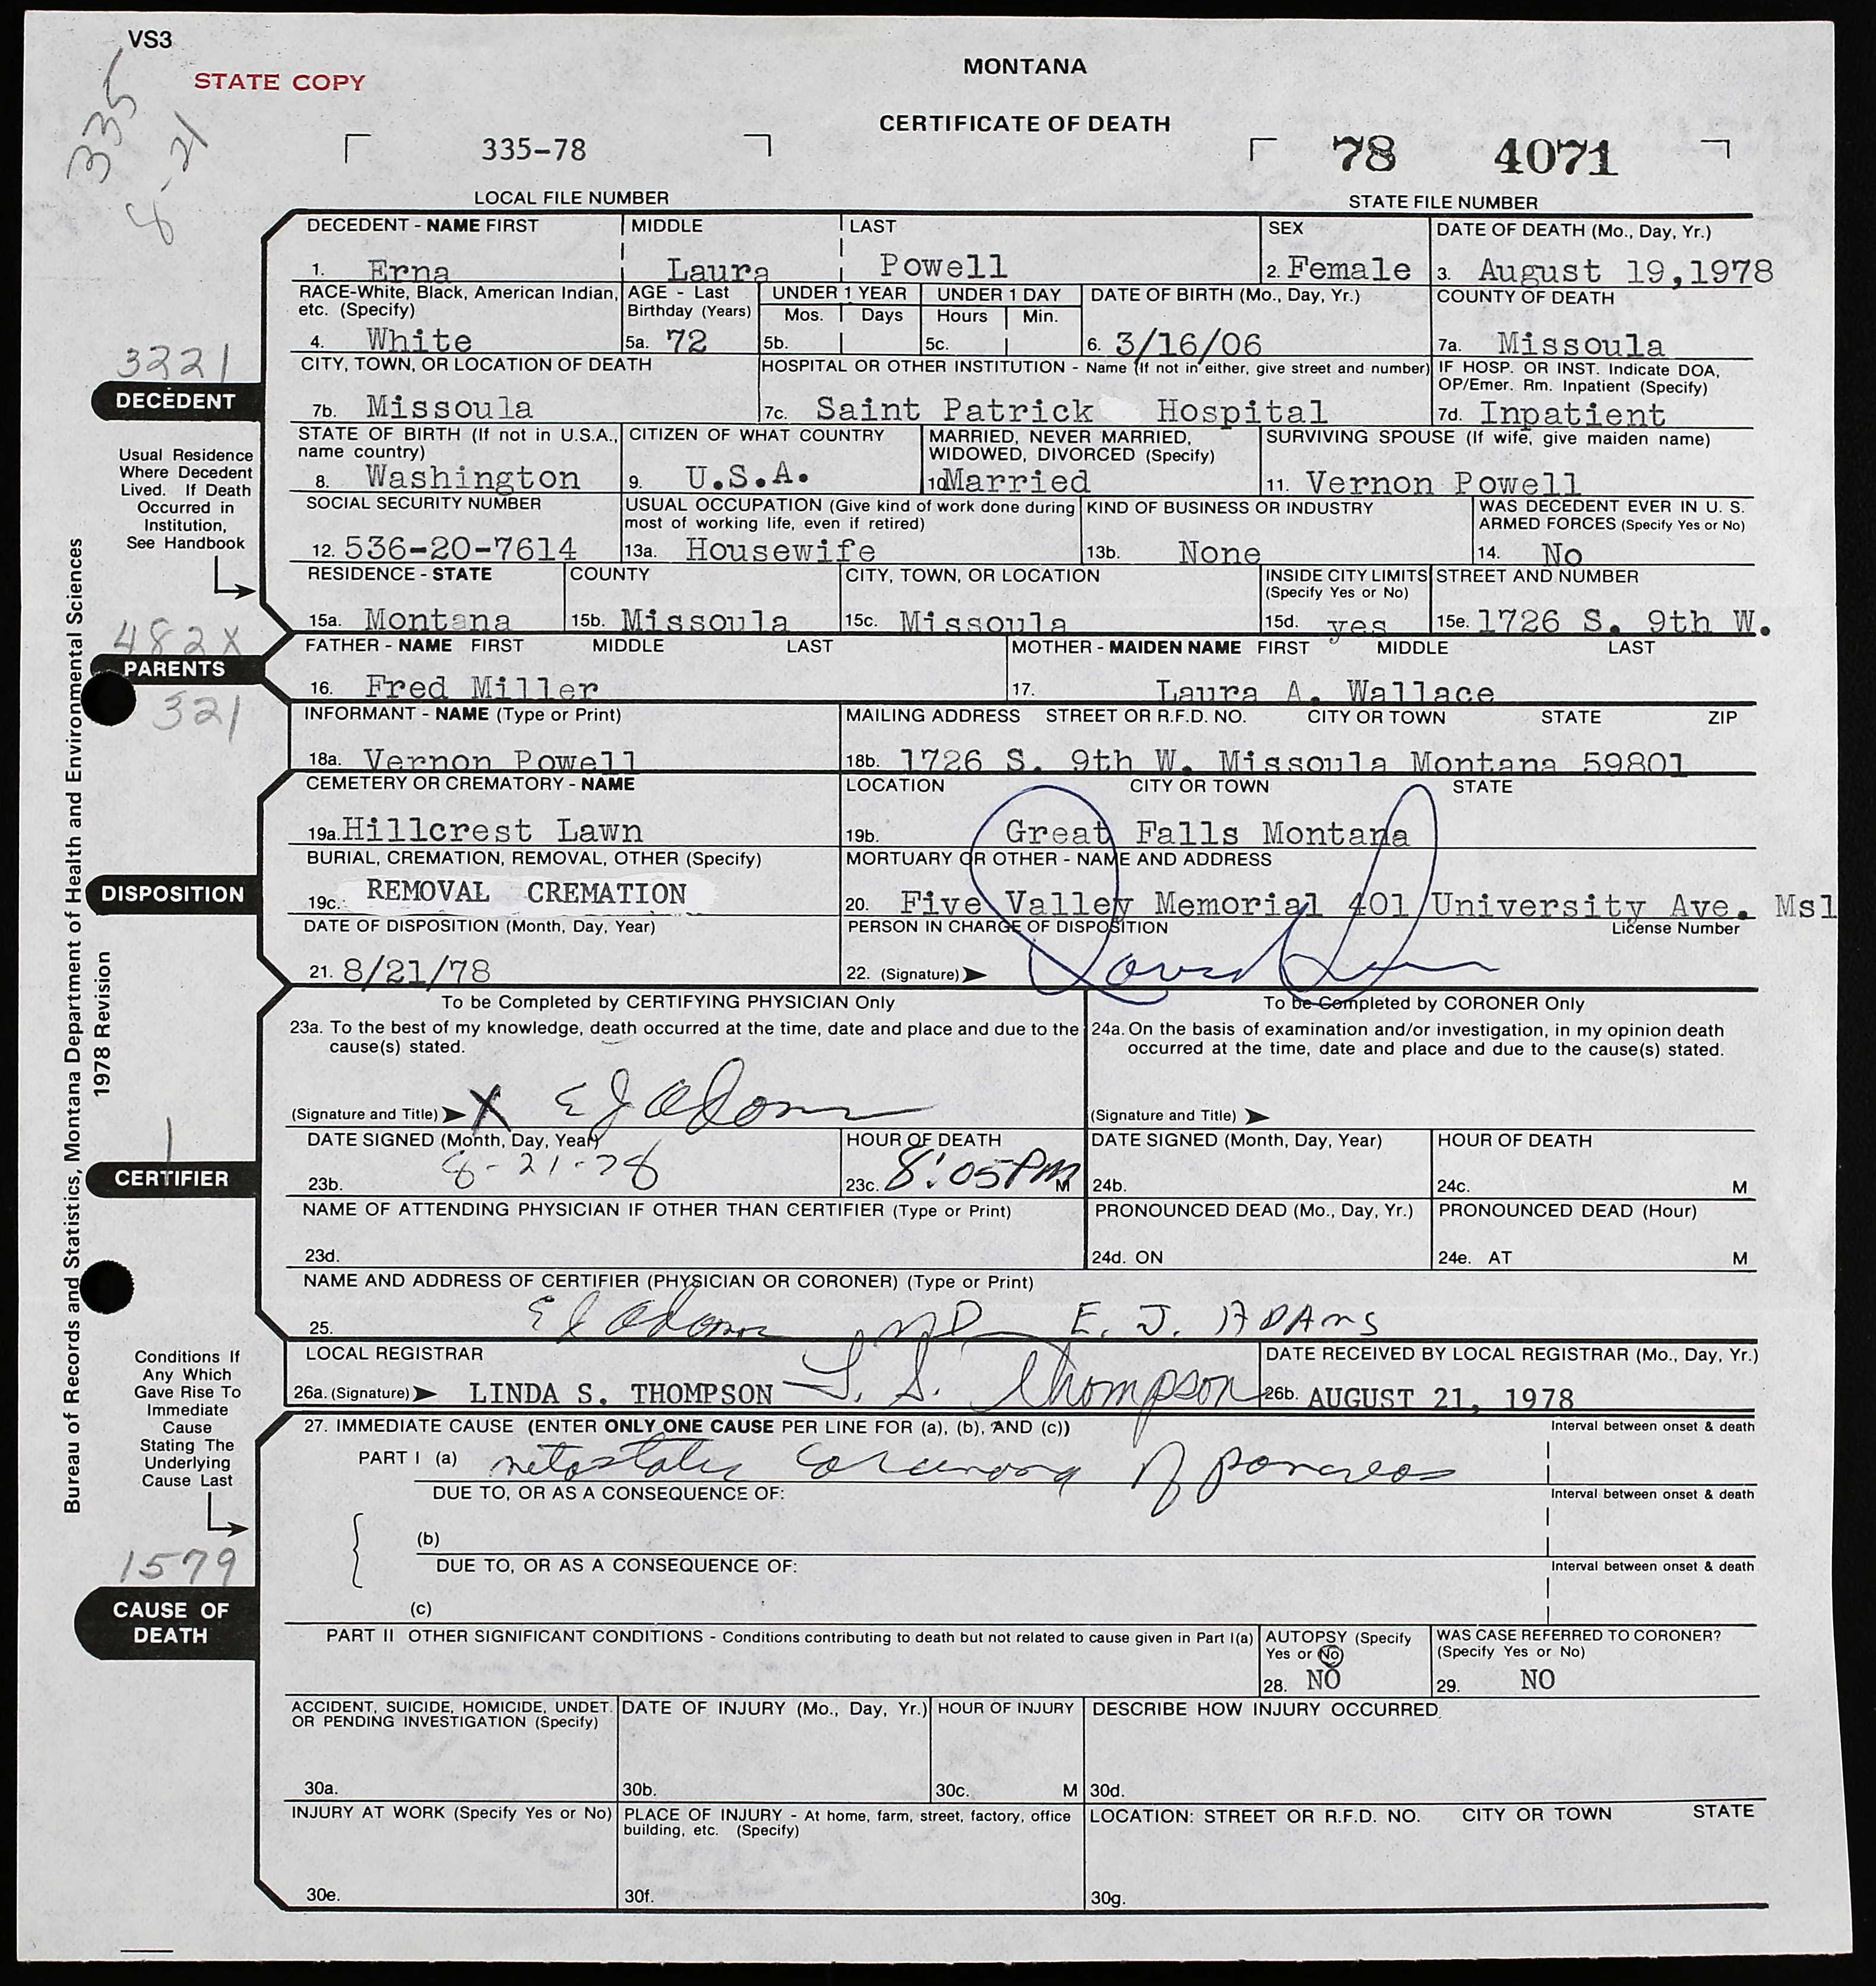 VS3
STATE COPY
335
8-21
MONTANA
CERTIFICATE OF DEATH
335-78
78 4071
LOCAL FILE NUMBER
STATE FILE NUMBER
DECEDENT - NAME FIRST MIDDLE LAST SEX DATE OF DEATH (Mo., Day, Yr.)
1. Erna Laura Powell 2. Female 3. August 19,1978
RACE-White, Black, American Indian, etc. (Specify)
4. White
AGE - Last Birthday (Years)
5a. 72
UNDER 1 YEAR
Mos. Days
5b.
UNDER 1 DAY
Hours Min.
5c.
DATE OF BIRTH (Mo., Day, Yr.)
6. 3/16/06
COUNTY OF DEATH
7a. Missoula
3221
DECEDENT
CITY, TOWN, OR LOCATION OF DEATH
7b. Missoula
HOSPITAL OR OTHER INSTITUTION - Name (If not in either, give street and number)
7c. Saint Patrick Hospital
IF HOSP. OR INST. Indicate DOA,
OP/Emer. Rm. Inpatient (Specify)
7d. Inpatient
Usual Residence
Where Decedent
Lived. If Death
Occurred in
Institution,
See Handbook
STATE OF BIRTH (If not in U.S.A.,
name country)
8. Washington
CITIZEN OF WHAT COUNTRY
9. U.S.A.
MARRIED, NEVER MARRIED,
WIDOWED, DIVORCED (Specify)
10. Married
SURVIVING SPOUSE (If wife, give maiden name)
11. Vernon Powell
SOCIAL SECURITY NUMBER
12. 536-20-7614
USUAL OCCUPATION (Give kind of work done during
most of working life, even if retired)
13a. Housewife
KIND OF BUSINESS OR INDUSTRY
13b. None
WAS DECEDENT EVER IN U. S.
ARMED FORCES (Specify Yes or No)
14. No
RESIDENCE - STATE
15a. Montana
COUNTY
15b. Missoula
CITY, TOWN, OR LOCATION
15c. Missoula
INSIDE CITY LIMITS
(Specify Yes or No)
15d. yes
STREET AND NUMBER
15e. 1726 S. 9th W.
482X
PARENTS
321
FATHER - NAME FIRST MIDDLE LAST
16. Fred Miller
MOTHER - MAIDEN NAME FIRST MIDDLE LAST
17. Laura A. Wallace
INFORMANT - NAME (Type or Print)
18a. Vernon Powell
MAILING ADDRESS STREET OR R.F.D. NO. CITY OR TOWN STATE ZIP
18b. 1726 S. 9th W. Missoula Montana 59801
CEMETERY OR CREMATORY - NAME
19a. Hillcrest Lawn
LOCATION CITY OR TOWN STATE
19b. Great Falls Montana
DISPOSITION
BURIAL, CREMATION, REMOVAL, OTHER (Specify)
19c. REMOVAL CREMATION
MORTUARY OR OTHER - NAME AND ADDRESS
20. Five Valley Memorial 401 University Ave. Msl
DATE OF DISPOSITION (Month, Day, Year)
21. 8/21/78
PERSON IN CHARGE OF DISPOSITION License Number
22. (Signature)
To be Completed by CERTIFYING PHYSICIAN Only
23a. To the best of my knowledge, death occurred at the time, date and place and due to the
cause(s) stated.
(Signature and Title) X E J Adams
To be Completed by CORONER Only
24a. On the basis of examination and/or investigation, in my opinion death
occurred at the time, date and place and due to the cause(s) stated.
(Signature and Title)
1
CERTIFIER
DATE SIGNED (Month, Day, Year)
23b. 8-21-78
HOUR OF DEATH
23c. 8:05 PM M
DATE SIGNED (Month, Day, Year)
24b.
HOUR OF DEATH
24c. M
NAME OF ATTENDING PHYSICIAN IF OTHER THAN CERTIFIER (Type or Print)
23d.
PRONOUNCED DEAD (Mo., Day, Yr.)
24d. ON
PRONOUNCED DEAD (Hour)
24e. AT M
NAME AND ADDRESS OF CERTIFIER (PHYSICIAN OR CORONER) (Type or Print)
25. E J Adams MD E. J. ADAMS
LOCAL REGISTRAR
26a. (Signature) LINDA S. THOMPSON L. S. Thompson
DATE RECEIVED BY LOCAL REGISTRAR (Mo., Day, Yr.)
26b. AUGUST 21, 1978
Conditions If
Any Which
Gave Rise To
Immediate
Cause
Stating The
Underlying
Cause Last
27. IMMEDIATE CAUSE (ENTER ONLY ONE CAUSE PER LINE FOR (a), (b), AND (c)) Interval between onset & death
PART I (a) metastatic carcinoma of pancreas
DUE TO, OR AS A CONSEQUENCE OF: Interval between onset & death
(b)
DUE TO, OR AS A CONSEQUENCE OF: Interval between onset & death
(c)
1579
CAUSE OF
DEATH
PART II OTHER SIGNIFICANT CONDITIONS - Conditions contributing to death but not related to cause given in Part I(a)
AUTOPSY (Specify
Yes or No)
28. NO
WAS CASE REFERRED TO CORONER?
(Specify Yes or No)
29. NO
ACCIDENT, SUICIDE, HOMICIDE, UNDET.
OR PENDING INVESTIGATION (Specify)
30a.
DATE OF INJURY (Mo., Day, Yr.)
30b.
HOUR OF INJURY
30c. M
DESCRIBE HOW INJURY OCCURRED
30d.
INJURY AT WORK (Specify Yes or No)
30e.
PLACE OF INJURY - At home, farm, street, factory, office
building, etc. (Specify)
30f.
LOCATION: STREET OR R.F.D. NO. CITY OR TOWN STATE
30g.
Bureau of Records and Statistics, Montana Department of Health and Environmental Sciences
1978 Revision